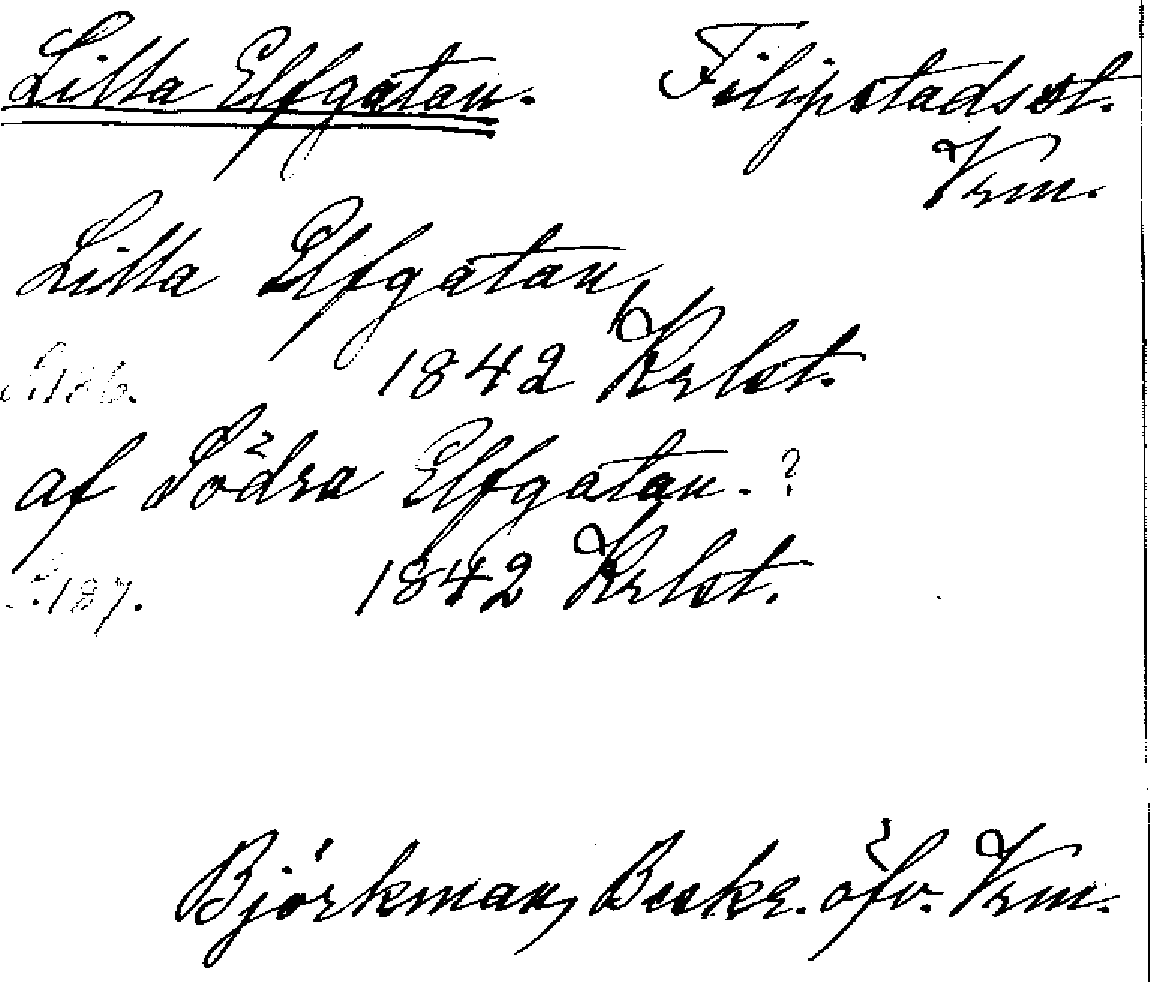 Lilla Elfgatan. Filipstads st.
Vrm.
Lilla Elfgatan,
S. 186. 1842 Krlst.
af Södra Elfgatan. ?
S. 187. 1842 Krlst.
Björkman, Beskr. öfv. Vrm.